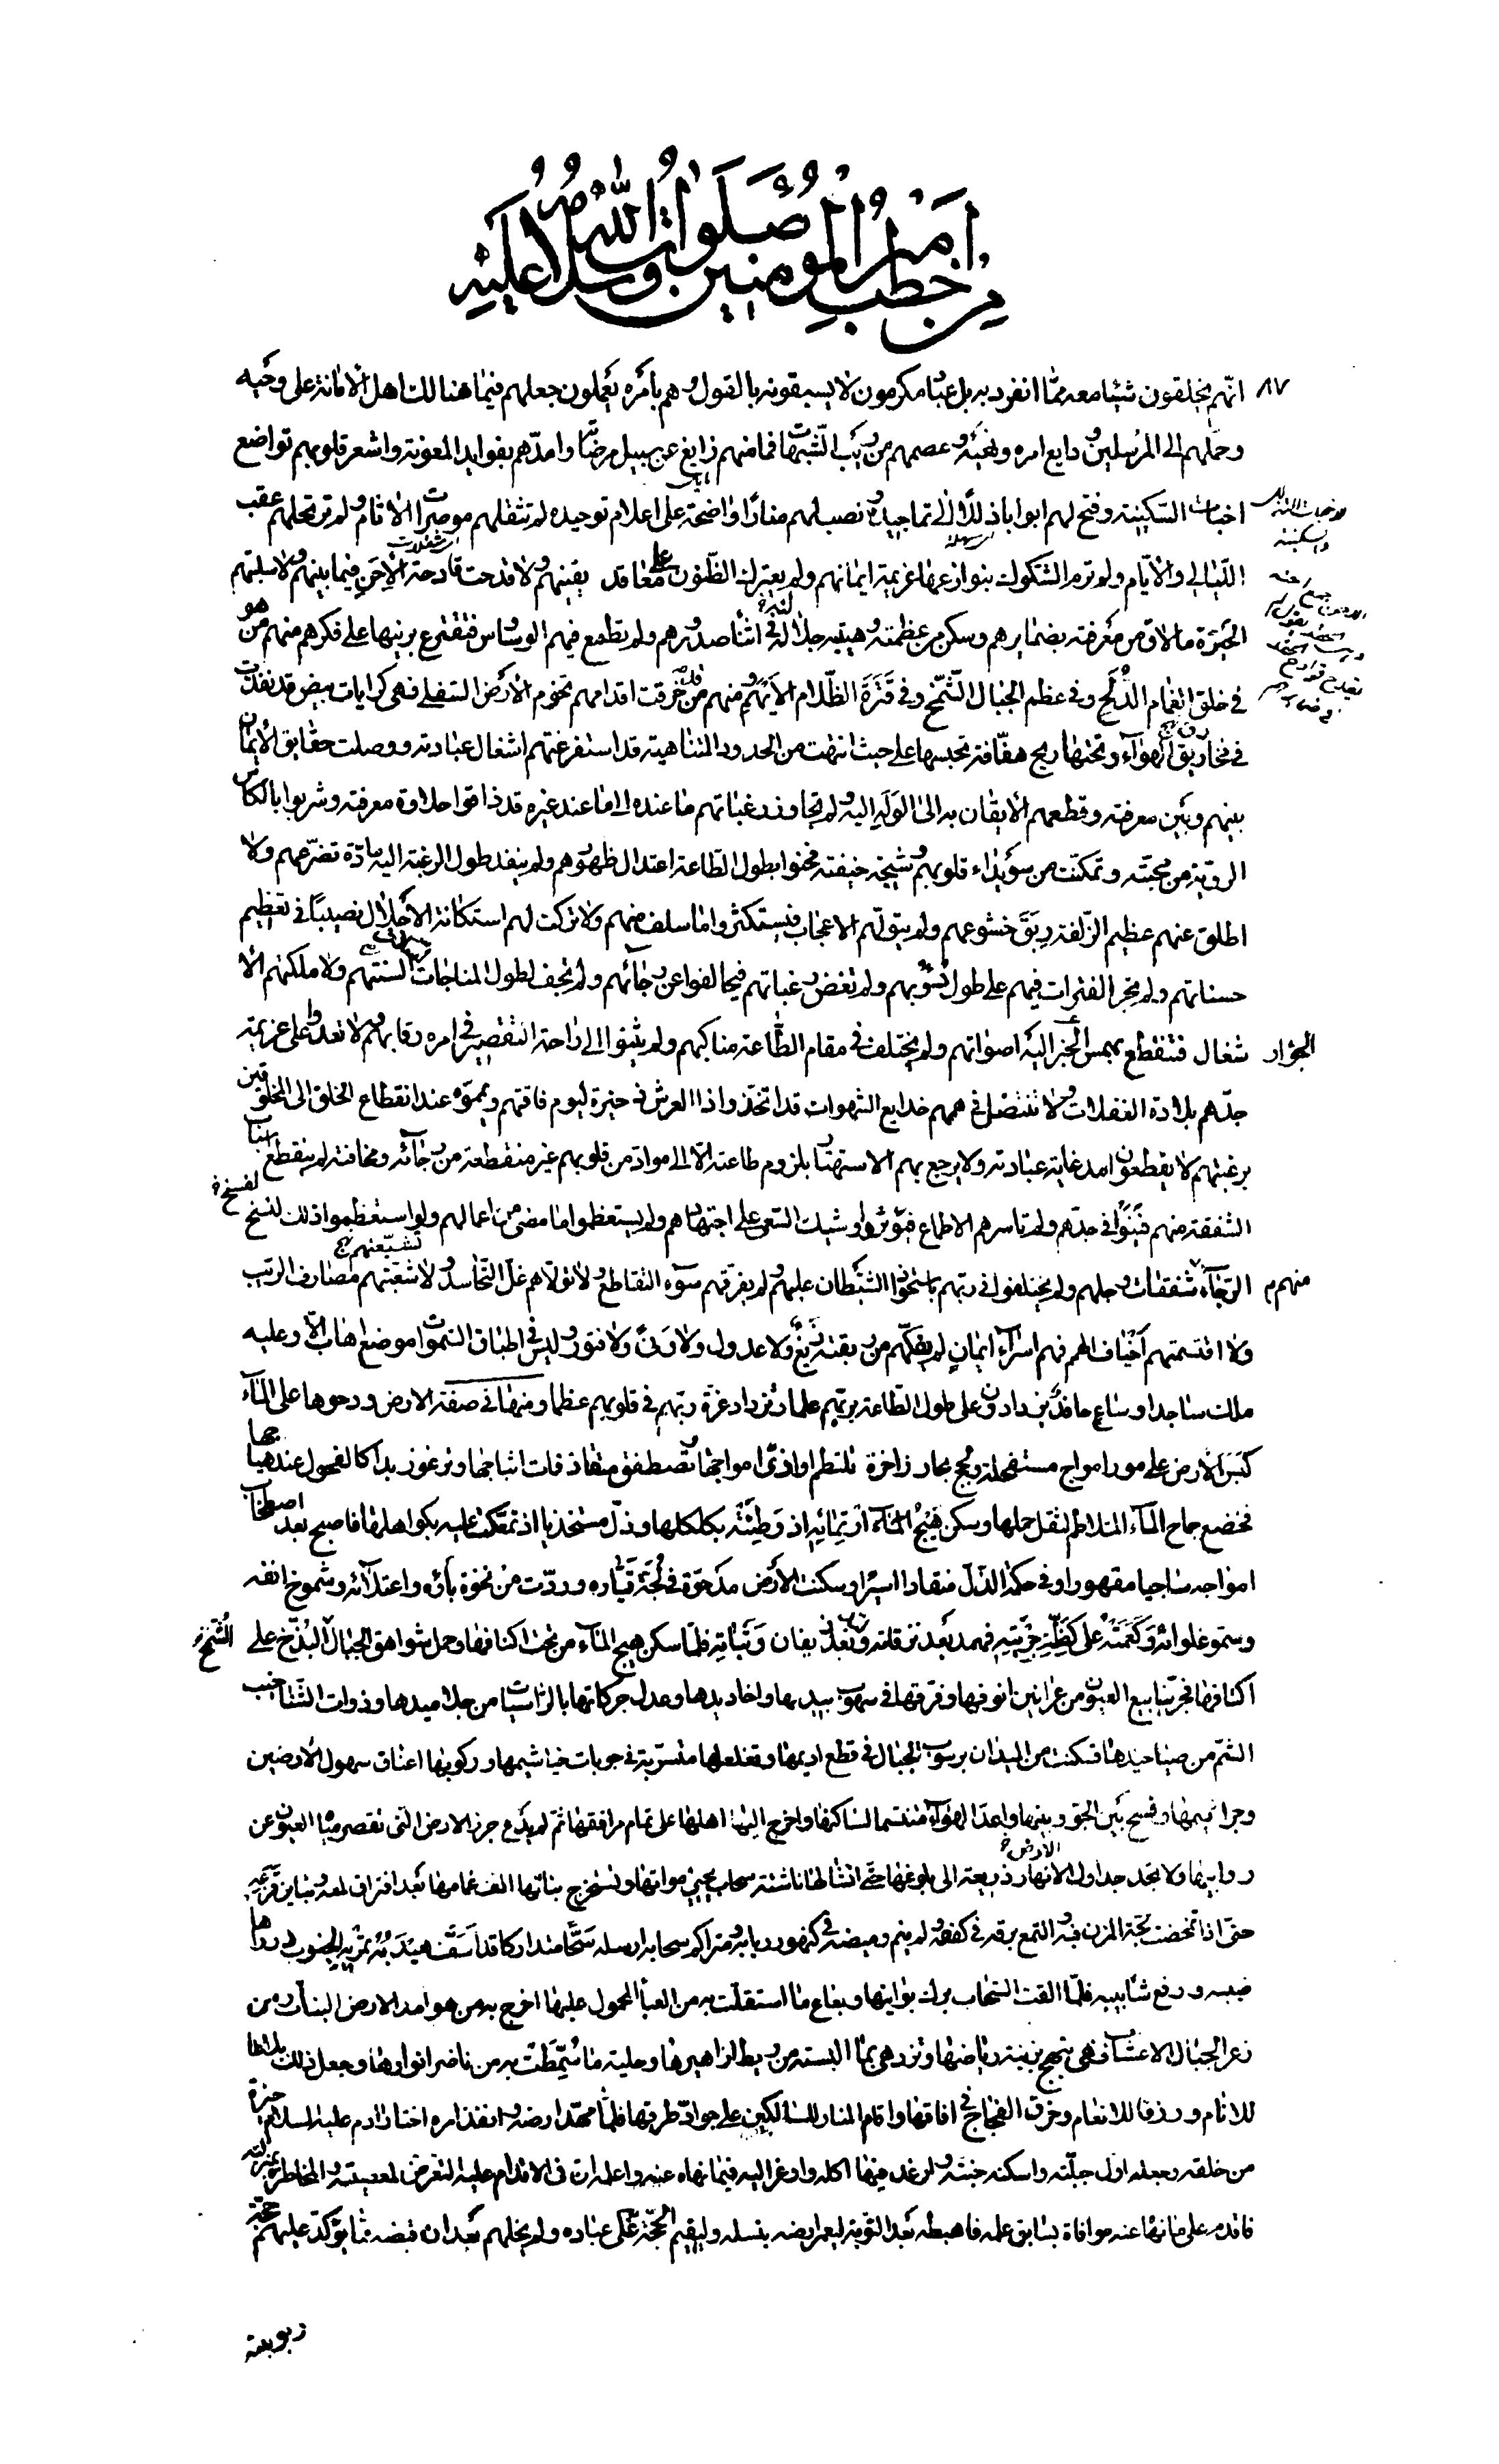 من خطب امير المؤمنين صلوات الله وسلامه عليه
٨٧
انهم يخلقون شيئا معه مما انفرد به بل عباد مكرمون لا يسبقونه بالقول وهم بامره يعملون جعلهم فيما هنالك اهل الامانة على وحيه
وحملهم الى المرسلين ودايع امره ونهيه وعصمهم من ريب الشبهات فما منهم زايغ عن سبيل مرضاته وامدهم بفوايد المعونة واشعر قلوبهم تواضع
اخبات السكينة وفتح لهم ابوابا ذللا الى تماجيده ونصب لهم منارا واضحة على اعلام توحيده لم تثقلهم موصرات الاثام ولم ترتحلهم عقب
الليالي والايام ولم ترم الشكوك بنوازعها عزيمة ايمانهم ولم يعترك الظنون على معاقد يقينهم ولا قدحت قادحة الاحن فيما بينهم ولا سلبتهم
الحيرة ما لاق من معرفته بضمايرهم وسكن من عظمته وهيبة جلاله في اثناء صدورهم ولم يطمع فيهم الوساوس فتقترع برينها على فكرهم منهم من هو
في خلق الغمام الدلح وفي عظم الجبال الشمخ وفي قترة الظلام الايهم ومنهم من خرقت اقدامهم تخوم الارض السفلى فهي كرايات بيض قد نفذت
في مخاريق الهواء وتحتها ريح هفافة تحبسها على حيث انتهت من الحدود المتناهية قد استفرغتهم اشغال عبادته ووصلت حقايق الايمان
بينهم وبين معرفته وقطعهم الايقان به الى الوله اليه ولم تجاوز رغباتهم ما عنده الى ما عند غيره قد ذاقوا حلاوة معرفته وشربوا بالكاس
الروية من محبته وتمكنت من سويداء قلوبهم وشيجة خيفته فحنوا بطول الطاعة اعتدال ظهورهم ولم ينفد طول الرغبة اليه مادة تضرعهم ولا
اطلق عنهم عظيم الزلفة ربق خشوعهم ولم يتولهم الاعجاب فيستكثروا ما سلف منهم ولا تركت لهم استكانة الاجلال نصيبا في تعظيم
حسناتهم ولم تجر الفترات فيهم على طول دؤوبهم ولم تغض رغباتهم فيخالفوا عن رجاء ربهم ولم تجف لطول المناجات اسلات السنتهم ولا ملكتهم الا
شغال فتنقطع بهمس الجؤار اليه اصواتهم ولم يختلف في مقام الطاعة مناكبهم ولم يثنوا الى راحة التقصير في امره رقابهم ولا تعدوا على عزيمة
جدهم بلادة الغفلات ولا تنتضل في هممهم خدايع الشهوات قد اتخذوا ذا العرش ذخيرة ليوم فاقتهم ويمموه عند انقطاع الخلق الى المخلوقين
برغبتهم لا يقطعون امد غاية عبادته ولا يرجع بهم الاستهتار بلزوم طاعته الا الى مواد من قلوبهم غير منقطعة من رجائه ومخافته لم ينقطع اسباب
الشفقة منهم فينوا في جدهم ولم تاسرهم الاطماع فيؤثروا وشيك السعي على اجتهادهم ولم يستعظموا ما مضى من اعمالهم ولو استعظموا ذلك لنسخ
الرجاء منهم شفقات وجلهم ولم يختلفوا في ربهم باستحواذ الشيطان عليهم ولم يفرقهم سوء التقاطع ولا تولاهم غل التحاسد ولا شعبتهم مصارف الريب
ولا اقتسمتهم اخياف الهمم فهم اسراء ايمان لم يفكهم من ربقته زيغ ولا عدول ولا ونى ولا فتور وليس في اطباق السموات موضع اهاب الا وعليه
ملك ساجد او ساع حافد يزدادون على طول الطاعة بربهم علما وتزداد عزة ربهم في قلوبهم عظما ومنها في صفة الارض ودحوها على الماء
كبس الارض على مور امواج مستفحلة ولجج بحار زاخرة تلتطم اواذي امواجها وتصطفق متقاذفات اثباجها وترغو زبدا كالفحول عند هياجها
فخضع جماح الماء المتلاطم لثقل حملها وسكن هيج الماء ارتمائه اذ وطئته بكلكلها وذل مستخذيا اذ تمعكت عليه بكواهلها فاصبح بعد اصطخاب
امواجه ساجيا مقهورا وفي حكمة الذل منقادا اسيرا وسكنت الارض مدحوة في لجة تياره وردت من نخوة بأوه واعتلائه وشموخ انفه
وسمو غلوائه وكعمته على كظة جريته فهمد بعد نزقاته وبعد زيفان وثباته فلما سكن هيج الماء من تحت اكنافها وحمل شواهق الجبال البذخ على
اكتافها فجر ينابيع العيون من عرانين انوفها وفرقها في سهوب بيدها واخاديدها وعدل حركاتها بالراسيات من جلاميدها وذوات الشناخيب
الشم من صياخيدها فسكنت من الميدان برسوب الجبال في قطع اديمها وتغلغلها متسربة في جوبات خياشيمها وركوبها اعناق سهول الارضين
وجراثيمها وفسح بين الجو وبينها واعد الهواء متنسما لساكنها واخرج اليها اهلها على تمام مرافقها ثم لم يدع جرز الارض التي تقصر مياه العيون عن
روابيها ولا تجد جداول الانهار ذريعة الى بلوغها حتى انشأ لها ناشئة سحاب يحيي مواتها وتستخرج نباتها الف غمامها بعد افتراق لمعه وتباين قزعه
حتى اذا تمخضت لجة المزن فيه والتمع برقه في كففه ولم ينم وميضه في كنهور ربابه ومتراكم سحابه ارسله سحا متداركا قد اسف هيدبه تمريه الجنوب درر اهاضيبه ودفع شآبيبه
فلما القت السحاب برك بوانيها وبعاع ما استقلت به من العبأ المحمول عليها اخرج به من هوامد الارض النبات ومن
زعر الجبال الاعشاب فهي تبهج بزينة رياضها وتزدهي بما البسته من ريط ازاهيرها وحلية ما سمطت به من ناضر انوارها وجعل ذلك بلاغا
للانام ورزقا للانعام وخرق الفجاج في افاقها واقام المنار للسالكين على جواد طرقها فلما مهد ارضه وانفذ امره اختار ادم عليه السلام خيرة
من خلقه وجعله اول جبلته واسكنه جنته وارغد فيها اكله واوعز اليه فيما نهاه عنه واعلمه ان في الاقدام عليه التعرض لمعصيته والمخاطرة بمنزلته
فاقدم على ما نهاه عنه موافاة لسابق علمه فاهبطه بعد التوبة ليعمر ارضه بنسله وليقيم الحجة على عباده ولم يخلهم بعد ان قبضه مما يؤكد عليهم حجة
ربوبيته